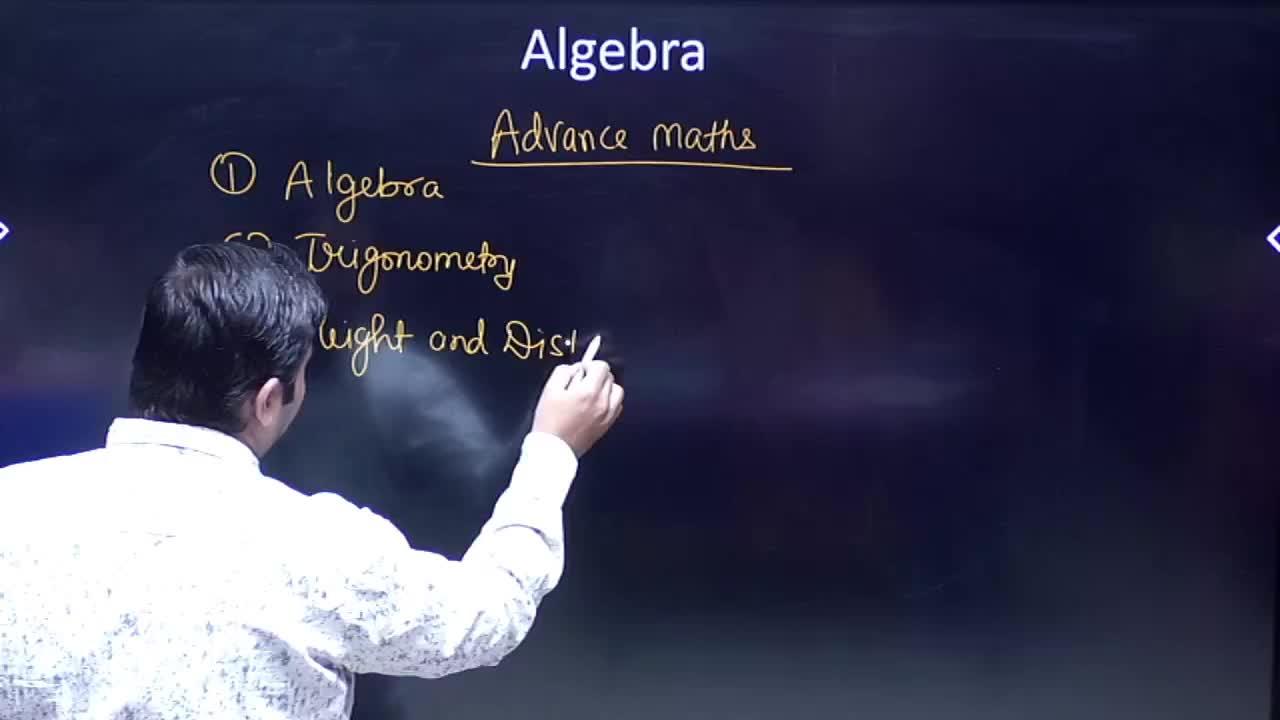 Algebra
Advance maths
① Algebra
Trigonometry
and